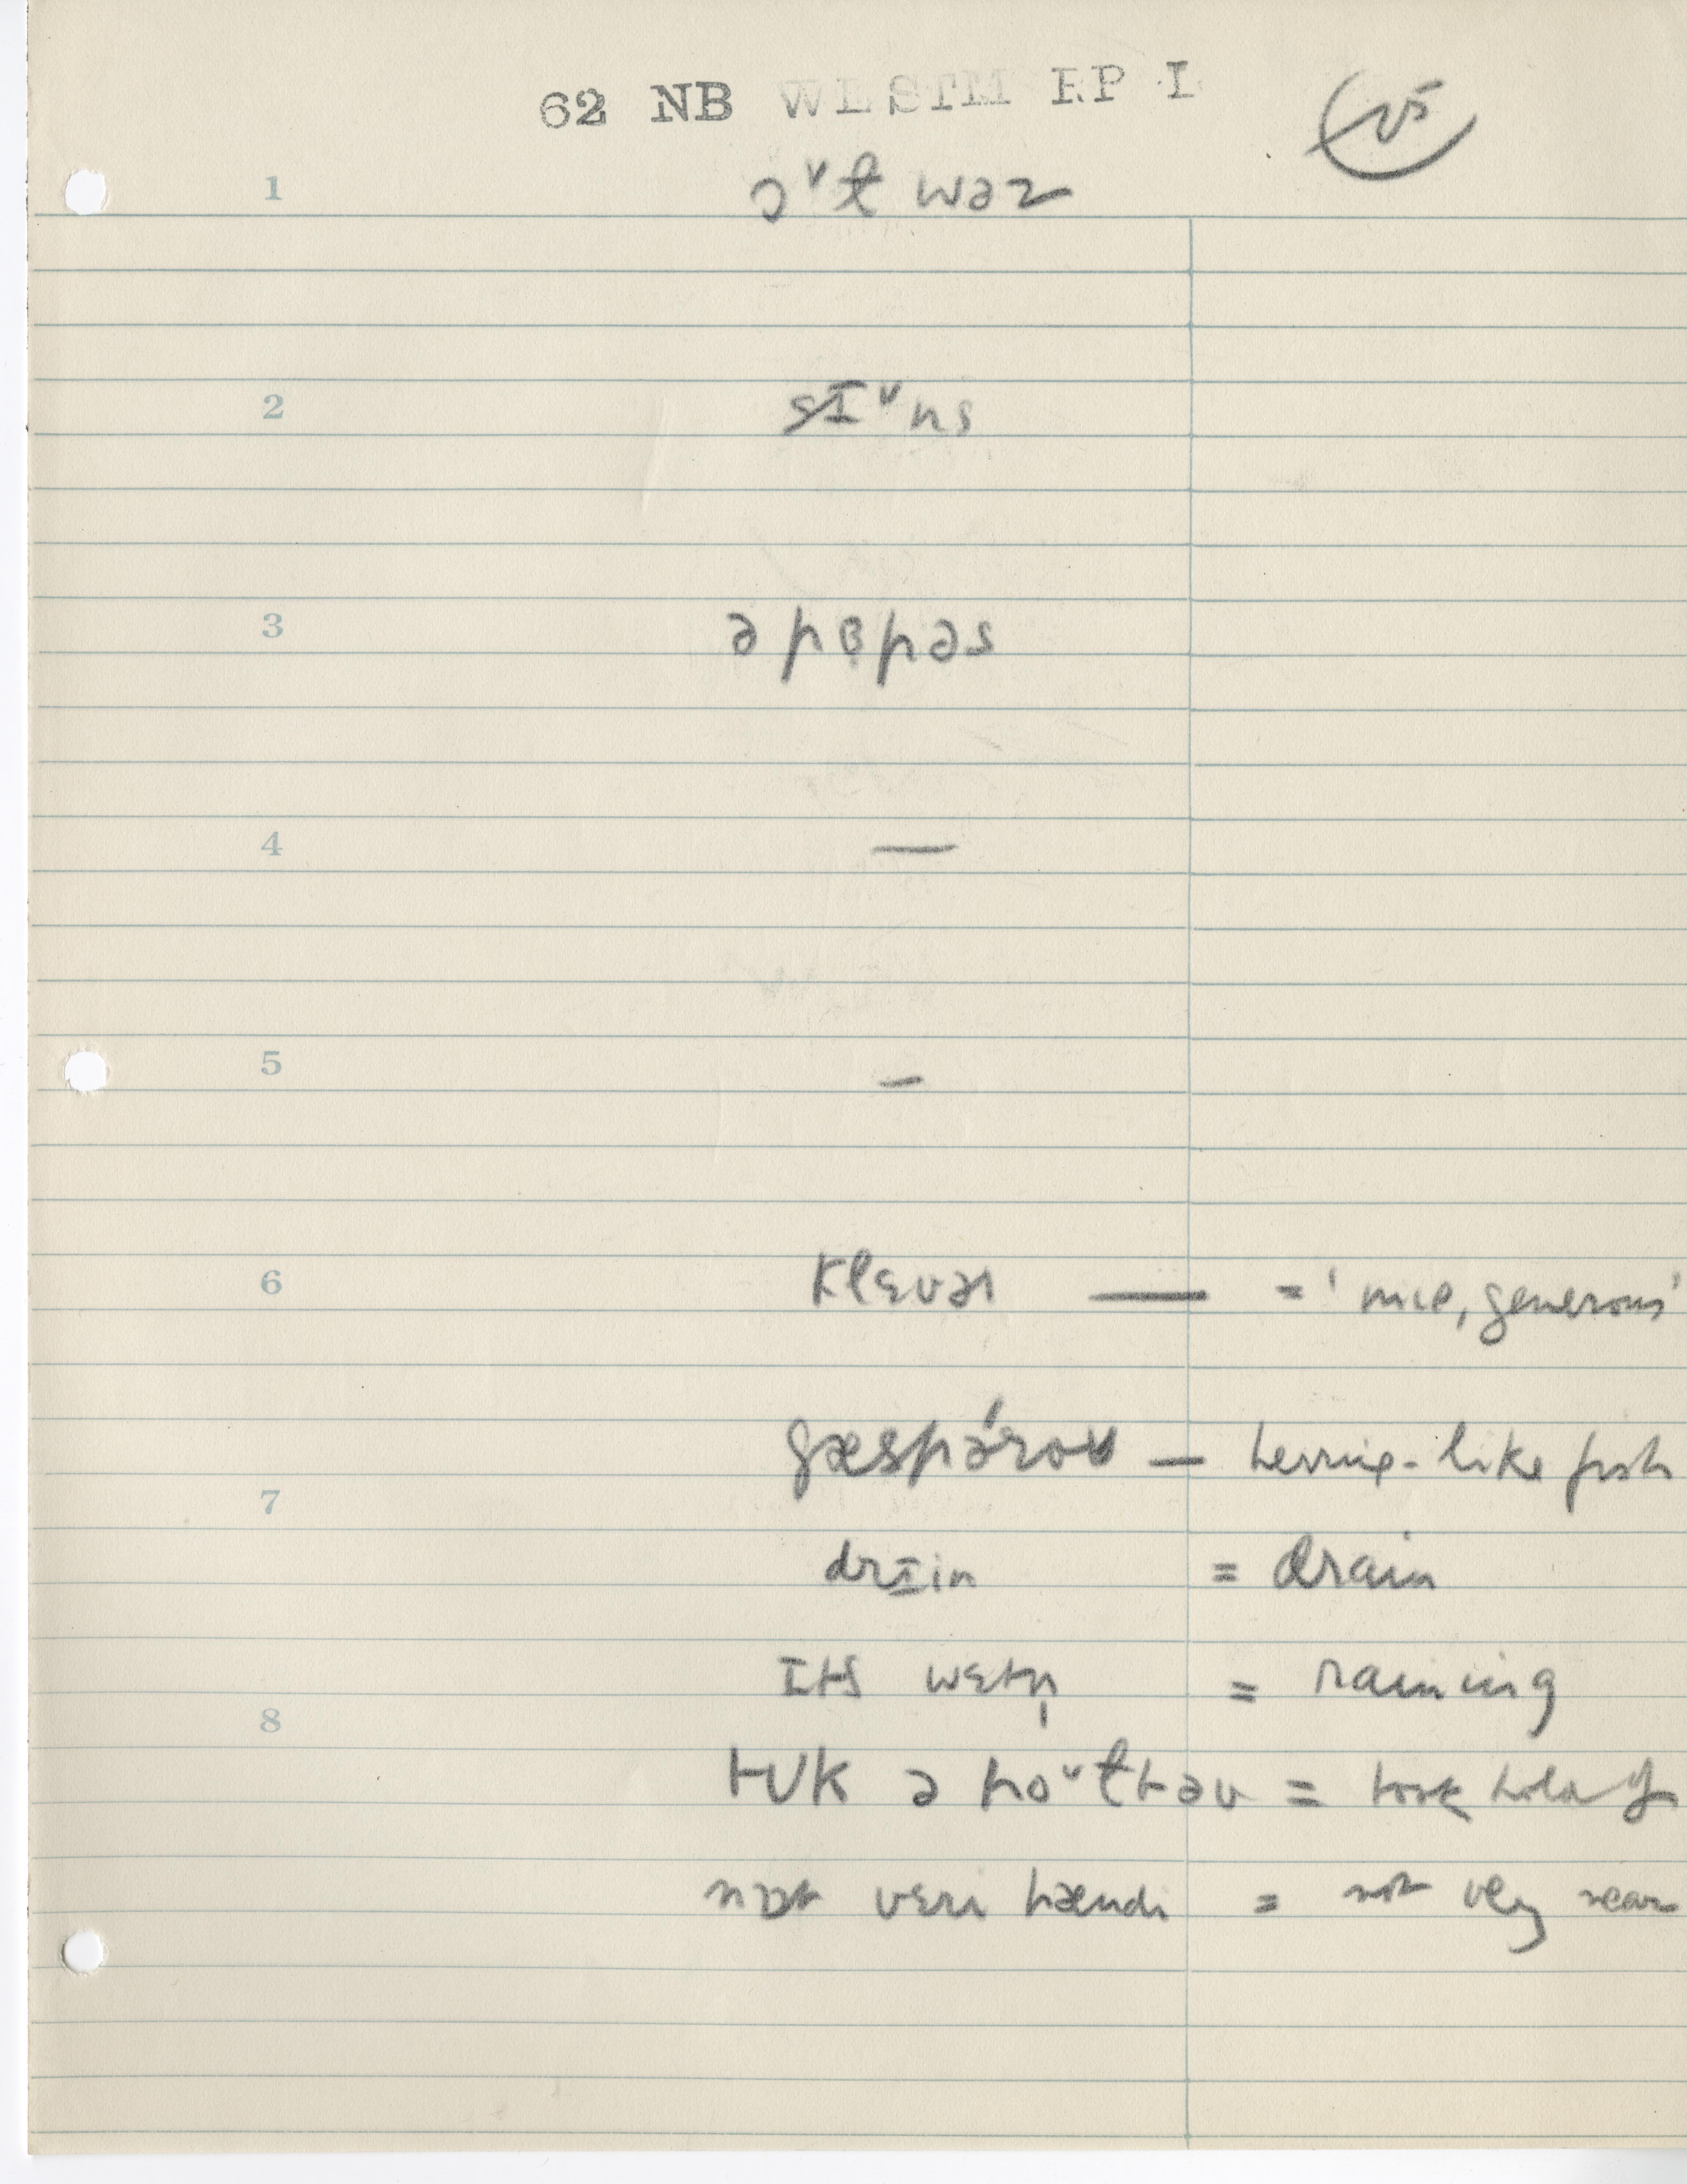 62 NB WESTM RP I
1
ɔᵛɫ wəz
2
sɪᵛns
3
ə pɐpəs
4
—
5
—
6
klɛvəɹ — = 'nice, generous'
gæspə́roʊ — herring-like fish
7
drɪin = drain
ɪts wɛtn̩ = raining
8
tʊk ə ho ᵛɫt əv = took hold of
nɒt vɛri hændi = not very near